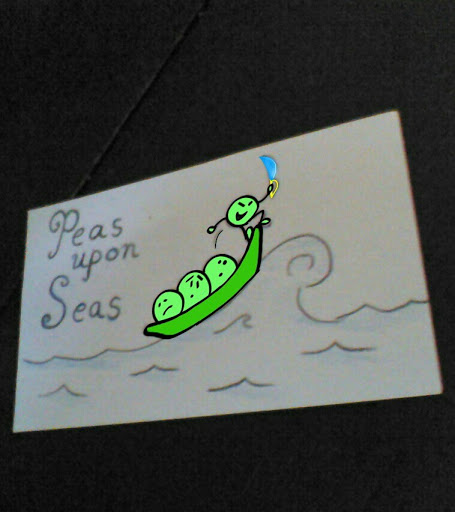 Peas
upon
Seas